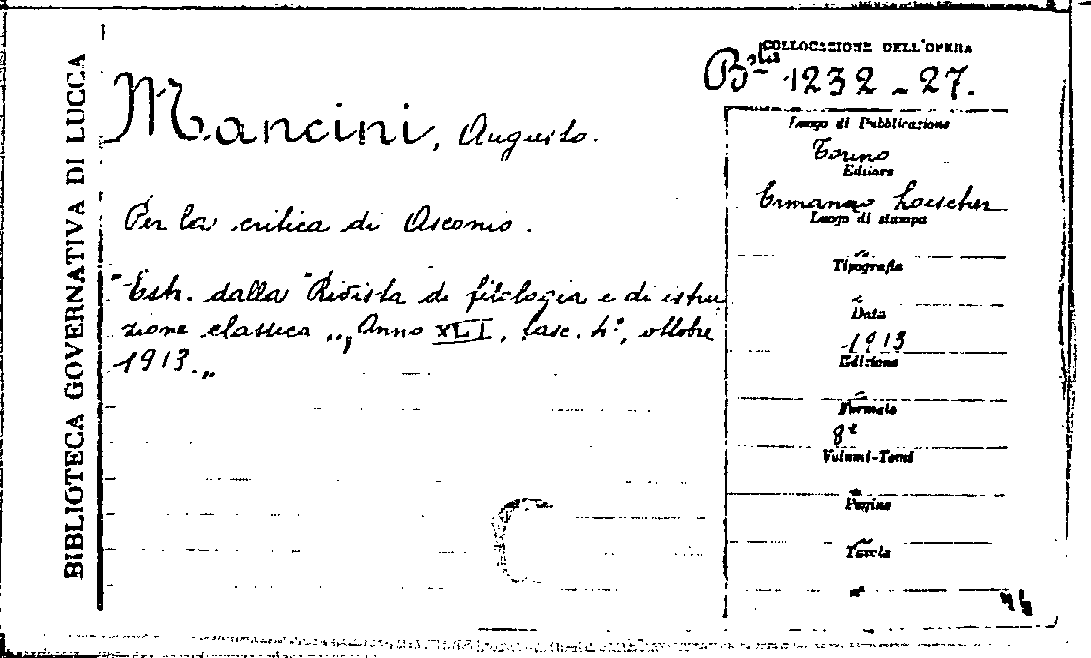 BIBLIOTECA GOVERNATIVA DI LUCCA
COLLOCAZIONE DELL'OPERA
Bta 1232-27.
Mancini, Augusto.
Per la critica di Asconio.
"Estr. dalla "Rivista di filologia e di istru
zione classica „, Anno XLI, fasc. 4°, ottobre
1913.„
Luogo di Pubblicazione
Torino
Editore
Ermanno Loescher
Luogo di stampa
Tipografia
Data
1913
Edizione
Formato
8°
Volumi-Tomi
Pagine
Tavole